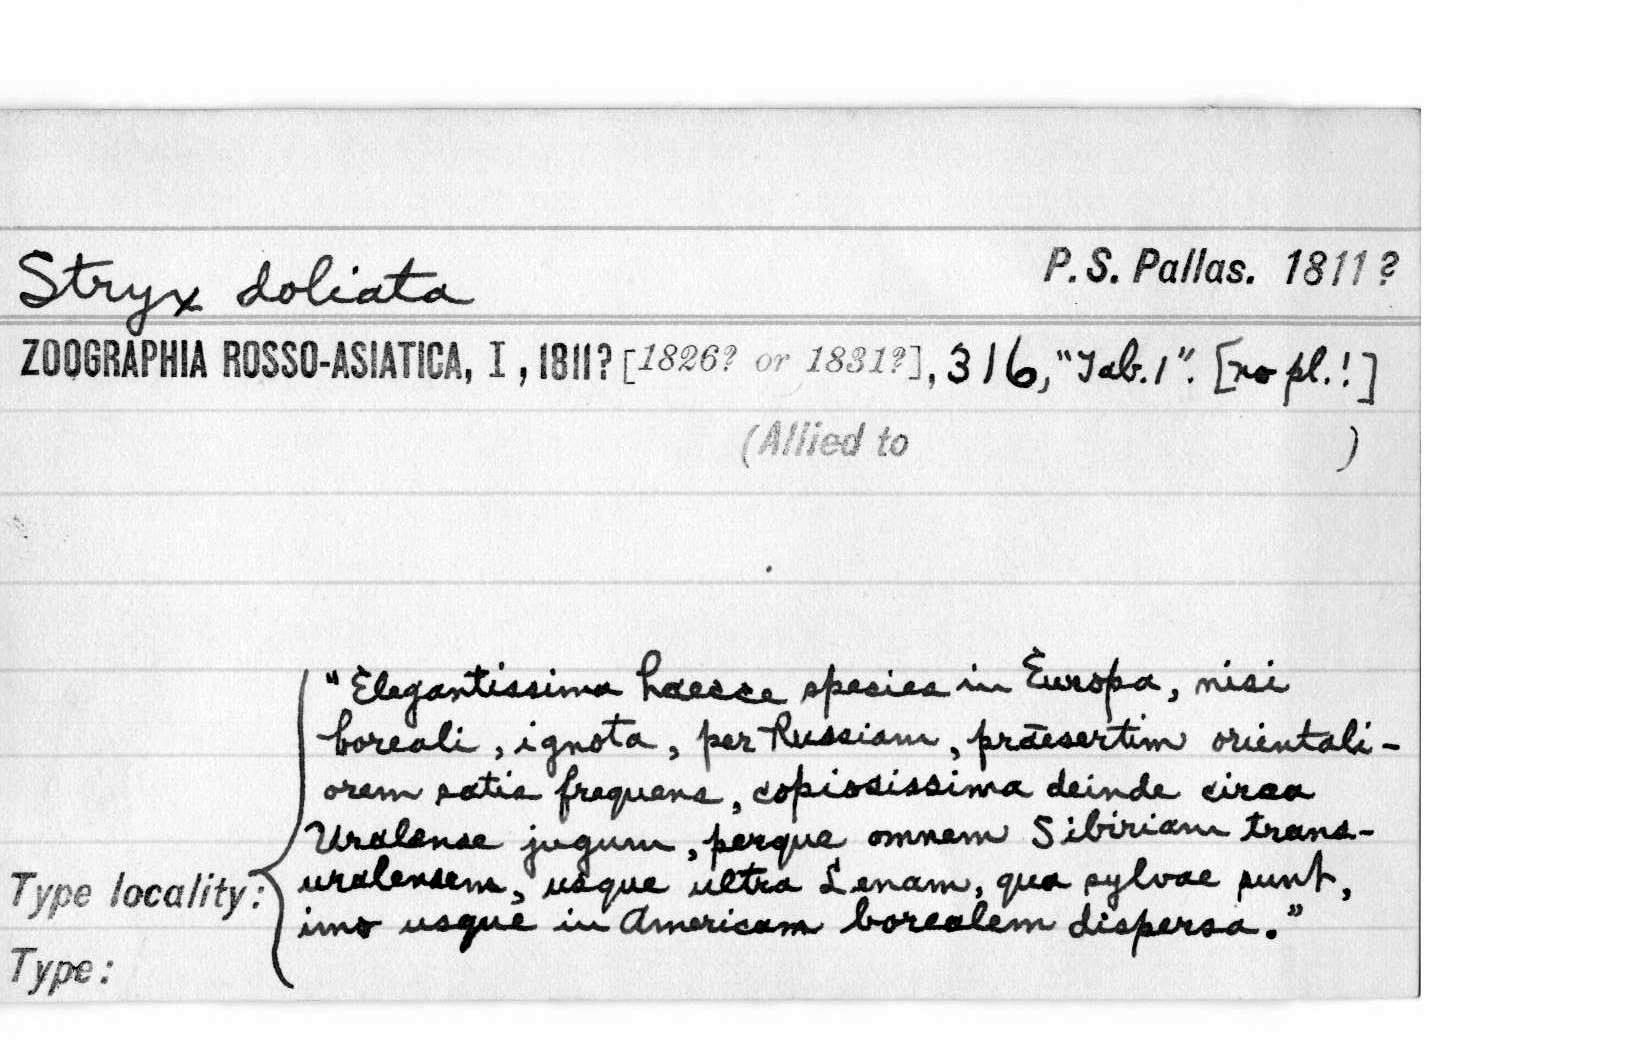 Stryx doliata
P. S. Pallas. 1811?
ZOOGRAPHIA ROSSO-ASIATICA, I, 1811? [1826? or 1831?], 316, "Tab. 1". [no pl.!]
(Allied to )
"Elegantissima haecce species in Europa, nisi
boreali, ignota, per Russiam, præsertim orientali-
orem satis frequens, copiosissima deinde circa
Uralense jugum, perque omnem Sibiriam trans-
Type locality: uralensem, usque ultra Lenam, qua sylvae sunt,
imo usque in Americam borealem dispersa."
Type: